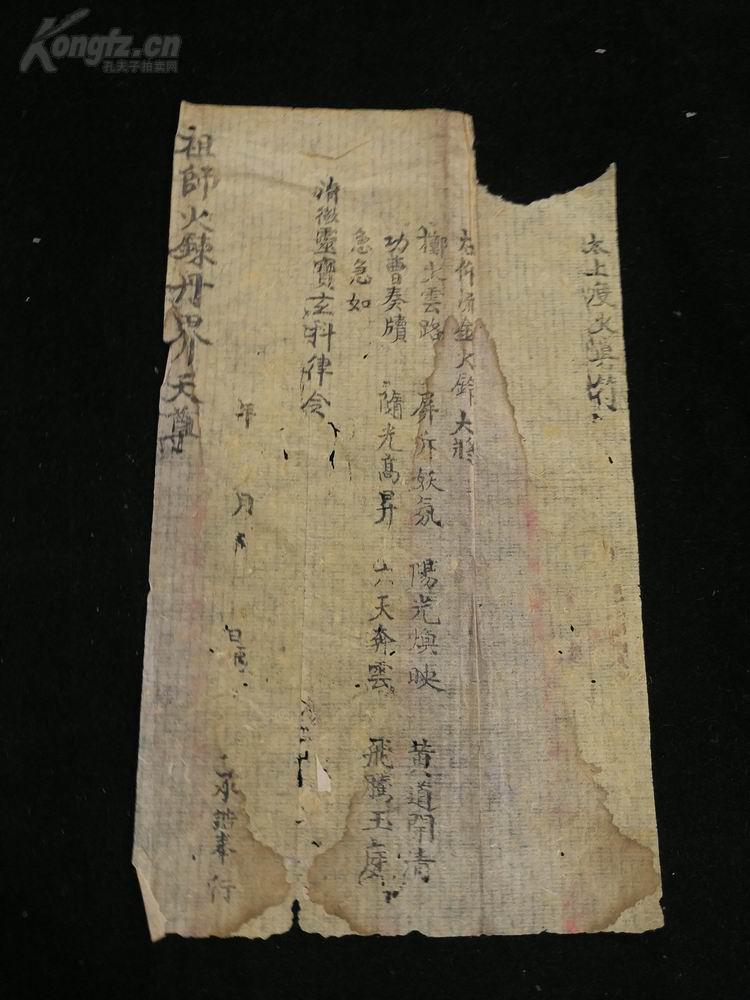 Kongfz.cn
孔夫子拍卖网
太上火
右流金火鈴大將
擲火雲路 屏斥妖氛 陽光煥映 黃道開清
功曹奏牘 隨光高昇 六天奔雲 飛騰玉
急急如
靈寶玄科律令
年 月 日
承 奉行
祖師火鍊丹界天尊